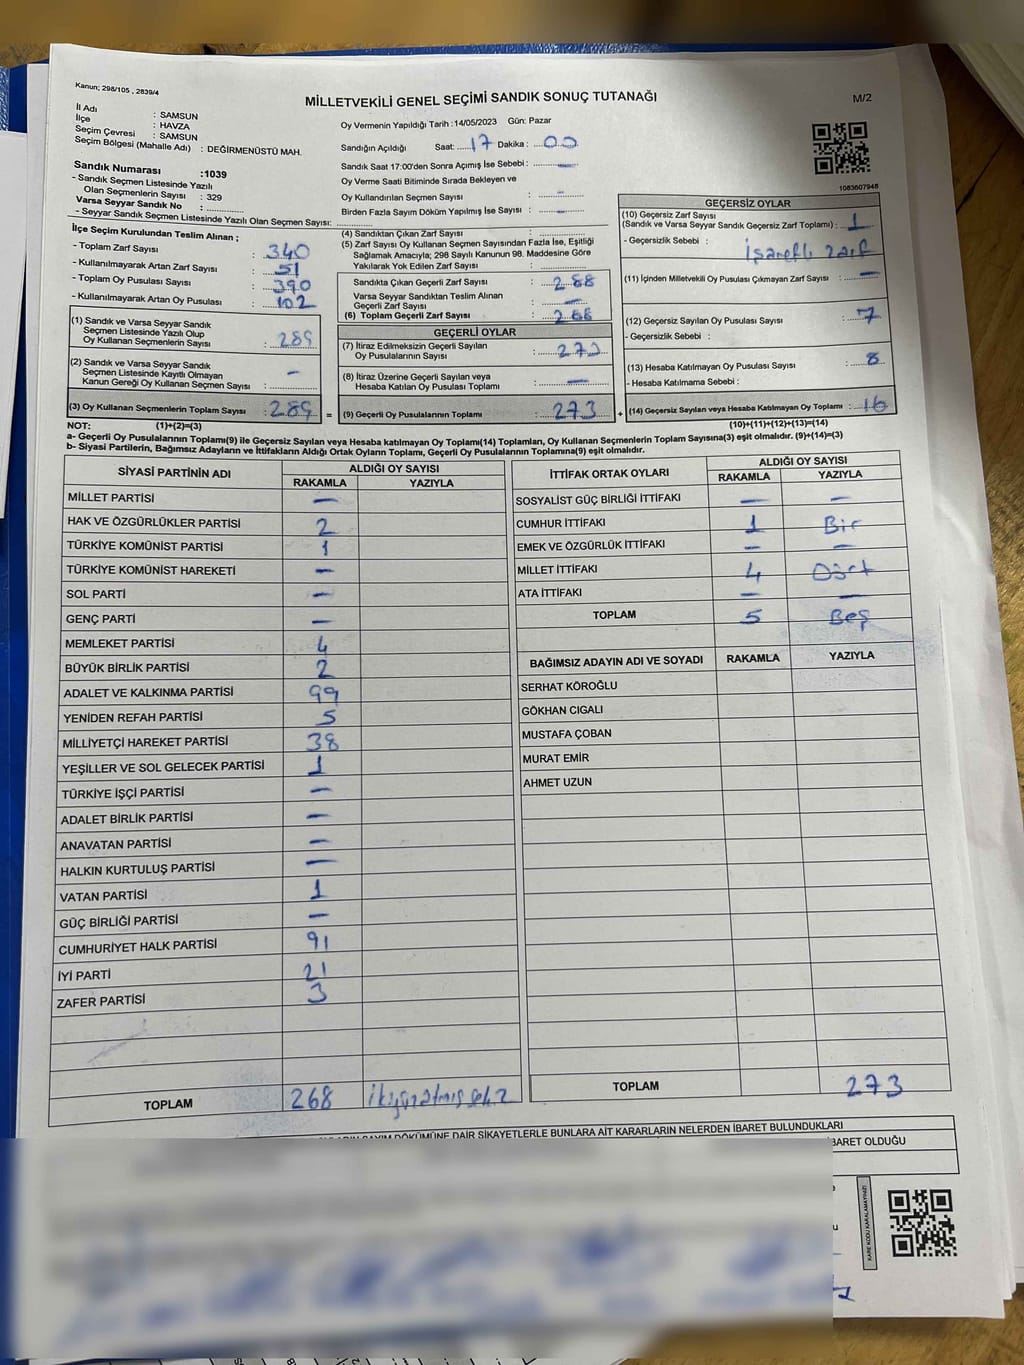 Kanun; 298/105 , 2839/4
MİLLETVEKİLİ GENEL SEÇİMİ SANDIK SONUÇ TUTANAĞI
M/2
İl Adı : SAMSUN
İlçe : HAVZA
Seçim Çevresi : SAMSUN
Seçim Bölgesi (Mahalle Adı) : DEĞİRMENÜSTÜ MAH.
Oy Vermenin Yapıldığı Tarih : 14/05/2023 Gün: Pazar
Sandığın Açıldığı Saat: 17 Dakika : 00
Sandık Saat 17:00'den Sonra Açımış İse Sebebi : —
Oy Verme Saati Bitiminde Sırada Bekleyen ve
Oy Kullandırılan Seçmen Sayısı : —
Birden Fazla Sayım Döküm Yapılmış İse Sayısı : —
1083607948
Sandık Numarası :1039
- Sandık Seçmen Listesinde Yazılı
Olan Seçmenlerin Sayısı : 329
Varsa Seyyar Sandık No :
- Seyyar Sandık Seçmen Listesinde Yazılı Olan Seçmen Sayısı:
İlçe Seçim Kurulundan Teslim Alınan ;
- Toplam Zarf Sayısı : 340
- Kullanılmayarak Artan Zarf Sayısı : 51
- Toplam Oy Pusulası Sayısı : 390
- Kullanılmayarak Artan Oy Pusulası : 102
(1) Sandık ve Varsa Seyyar Sandık
Seçmen Listesinde Yazılı Olup
Oy Kullanan Seçmenlerin Sayısı : 289
(2) Sandık ve Varsa Seyyar Sandık
Seçmen Listesinde Kayıtlı Olmayan
Kanun Gereği Oy Kullanan Seçmen Sayısı : —
(3) Oy Kullanan Seçmenlerin Toplam Sayısı : 289 =
(4) Sandıktan Çıkan Zarf Sayısı :
(5) Zarf Sayısı Oy Kullanan Seçmen Sayısından Fazla İse, Eşitliği
Sağlamak Amacıyla; 298 Sayılı Kanunun 98. Maddesine Göre
Yakılarak Yok Edilen Zarf Sayısı :
Sandıkta Çıkan Geçerli Zarf Sayısı : 288
Varsa Seyyar Sandıktan Teslim Alınan
Geçerli Zarf Sayısı : —
(6) Toplam Geçerli Zarf Sayısı : 288
GEÇERLİ OYLAR
(7) İtiraz Edilmeksizin Geçerli Sayılan
Oy Pusulalarının Sayısı : 273
(8) İtiraz Üzerine Geçerli Sayılan veya
Hesaba Katılan Oy Pusulası Toplamı : —
(9) Geçerli Oy Pusulalarının Toplamı : 273 +
GEÇERSİZ OYLAR
(10) Geçersiz Zarf Sayısı
(Sandık ve Varsa Seyyar Sandık Geçersiz Zarf Toplamı) : 1
- Geçersizlik Sebebi : İşaretli zarf
(11) İçinden Milletvekili Oy Pusulası Çıkmayan Zarf Sayısı : —
(12) Geçersiz Sayılan Oy Pusulası Sayısı : 7
- Geçersizlik Sebebi :
(13) Hesaba Katılmayan Oy Pusulası Sayısı : 8
- Hesaba Katılmama Sebebi :
(14) Geçersiz Sayılan veya Hesaba Katılmayan Oy Toplamı : 16
NOT: (1)+(2)=(3)
(10)+(11)+(12)+(13)=(14)
a- Geçerli Oy Pusulalarının Toplamı(9) ile Geçersiz Sayılan veya Hesaba katılmayan Oy Toplamı(14) Toplamları, Oy Kullanan Seçmenlerin Toplam Sayısına(3) eşit olmalıdır. (9)+(14)=(3)
b- Siyasi Partilerin, Bağımsız Adayların ve İttifakların Aldığı Ortak Oyların Toplamı, Geçerli Oy Pusulalarının Toplamına(9) eşit olmalıdır.
SİYASİ PARTİNİN ADI ALDIĞI OY SAYISI
RAKAMLA YAZIYLA
MİLLET PARTİSİ —
HAK VE ÖZGÜRLÜKLER PARTİSİ 2
TÜRKİYE KOMÜNİST PARTİSİ 1
TÜRKİYE KOMÜNİST HAREKETİ —
SOL PARTİ —
GENÇ PARTİ —
MEMLEKET PARTİSİ 4
BÜYÜK BİRLİK PARTİSİ 2
ADALET VE KALKINMA PARTİSİ 99
YENİDEN REFAH PARTİSİ 5
MİLLİYETÇİ HAREKET PARTİSİ 38
YEŞİLLER VE SOL GELECEK PARTİSİ 1
TÜRKİYE İŞÇİ PARTİSİ —
ADALET BİRLİK PARTİSİ —
ANAVATAN PARTİSİ —
HALKIN KURTULUŞ PARTİSİ —
VATAN PARTİSİ 1
GÜÇ BİRLİĞİ PARTİSİ —
CUMHURİYET HALK PARTİSİ 91
İYİ PARTİ 21
ZAFER PARTİSİ 3
TOPLAM 268 ikiyüzatmış sekiz
İTTİFAK ORTAK OYLARI ALDIĞI OY SAYISI
RAKAMLA YAZIYLA
SOSYALİST GÜÇ BİRLİĞİ İTTİFAKI — —
CUMHUR İTTİFAKI 1 Bir
EMEK VE ÖZGÜRLÜK İTTİFAKI — —
MİLLET İTTİFAKI 4 Dört
ATA İTTİFAKI — —
TOPLAM 5 Beş
BAĞIMSIZ ADAYIN ADI VE SOYADI RAKAMLA YAZIYLA
SERHAT KÖROĞLU
GÖKHAN CIGALI
MUSTAFA ÇOBAN
MURAT EMİR
AHMET UZUN
TOPLAM 273
SAYIM DÖKÜMÜNE DAİR ŞİKAYETLERLE BUNLARA AİT KARARLARIN NELERDEN İBARET BULUNDUKLARI
İBARET OLDUĞU
KARE KODU KARALAMAYINIZ!